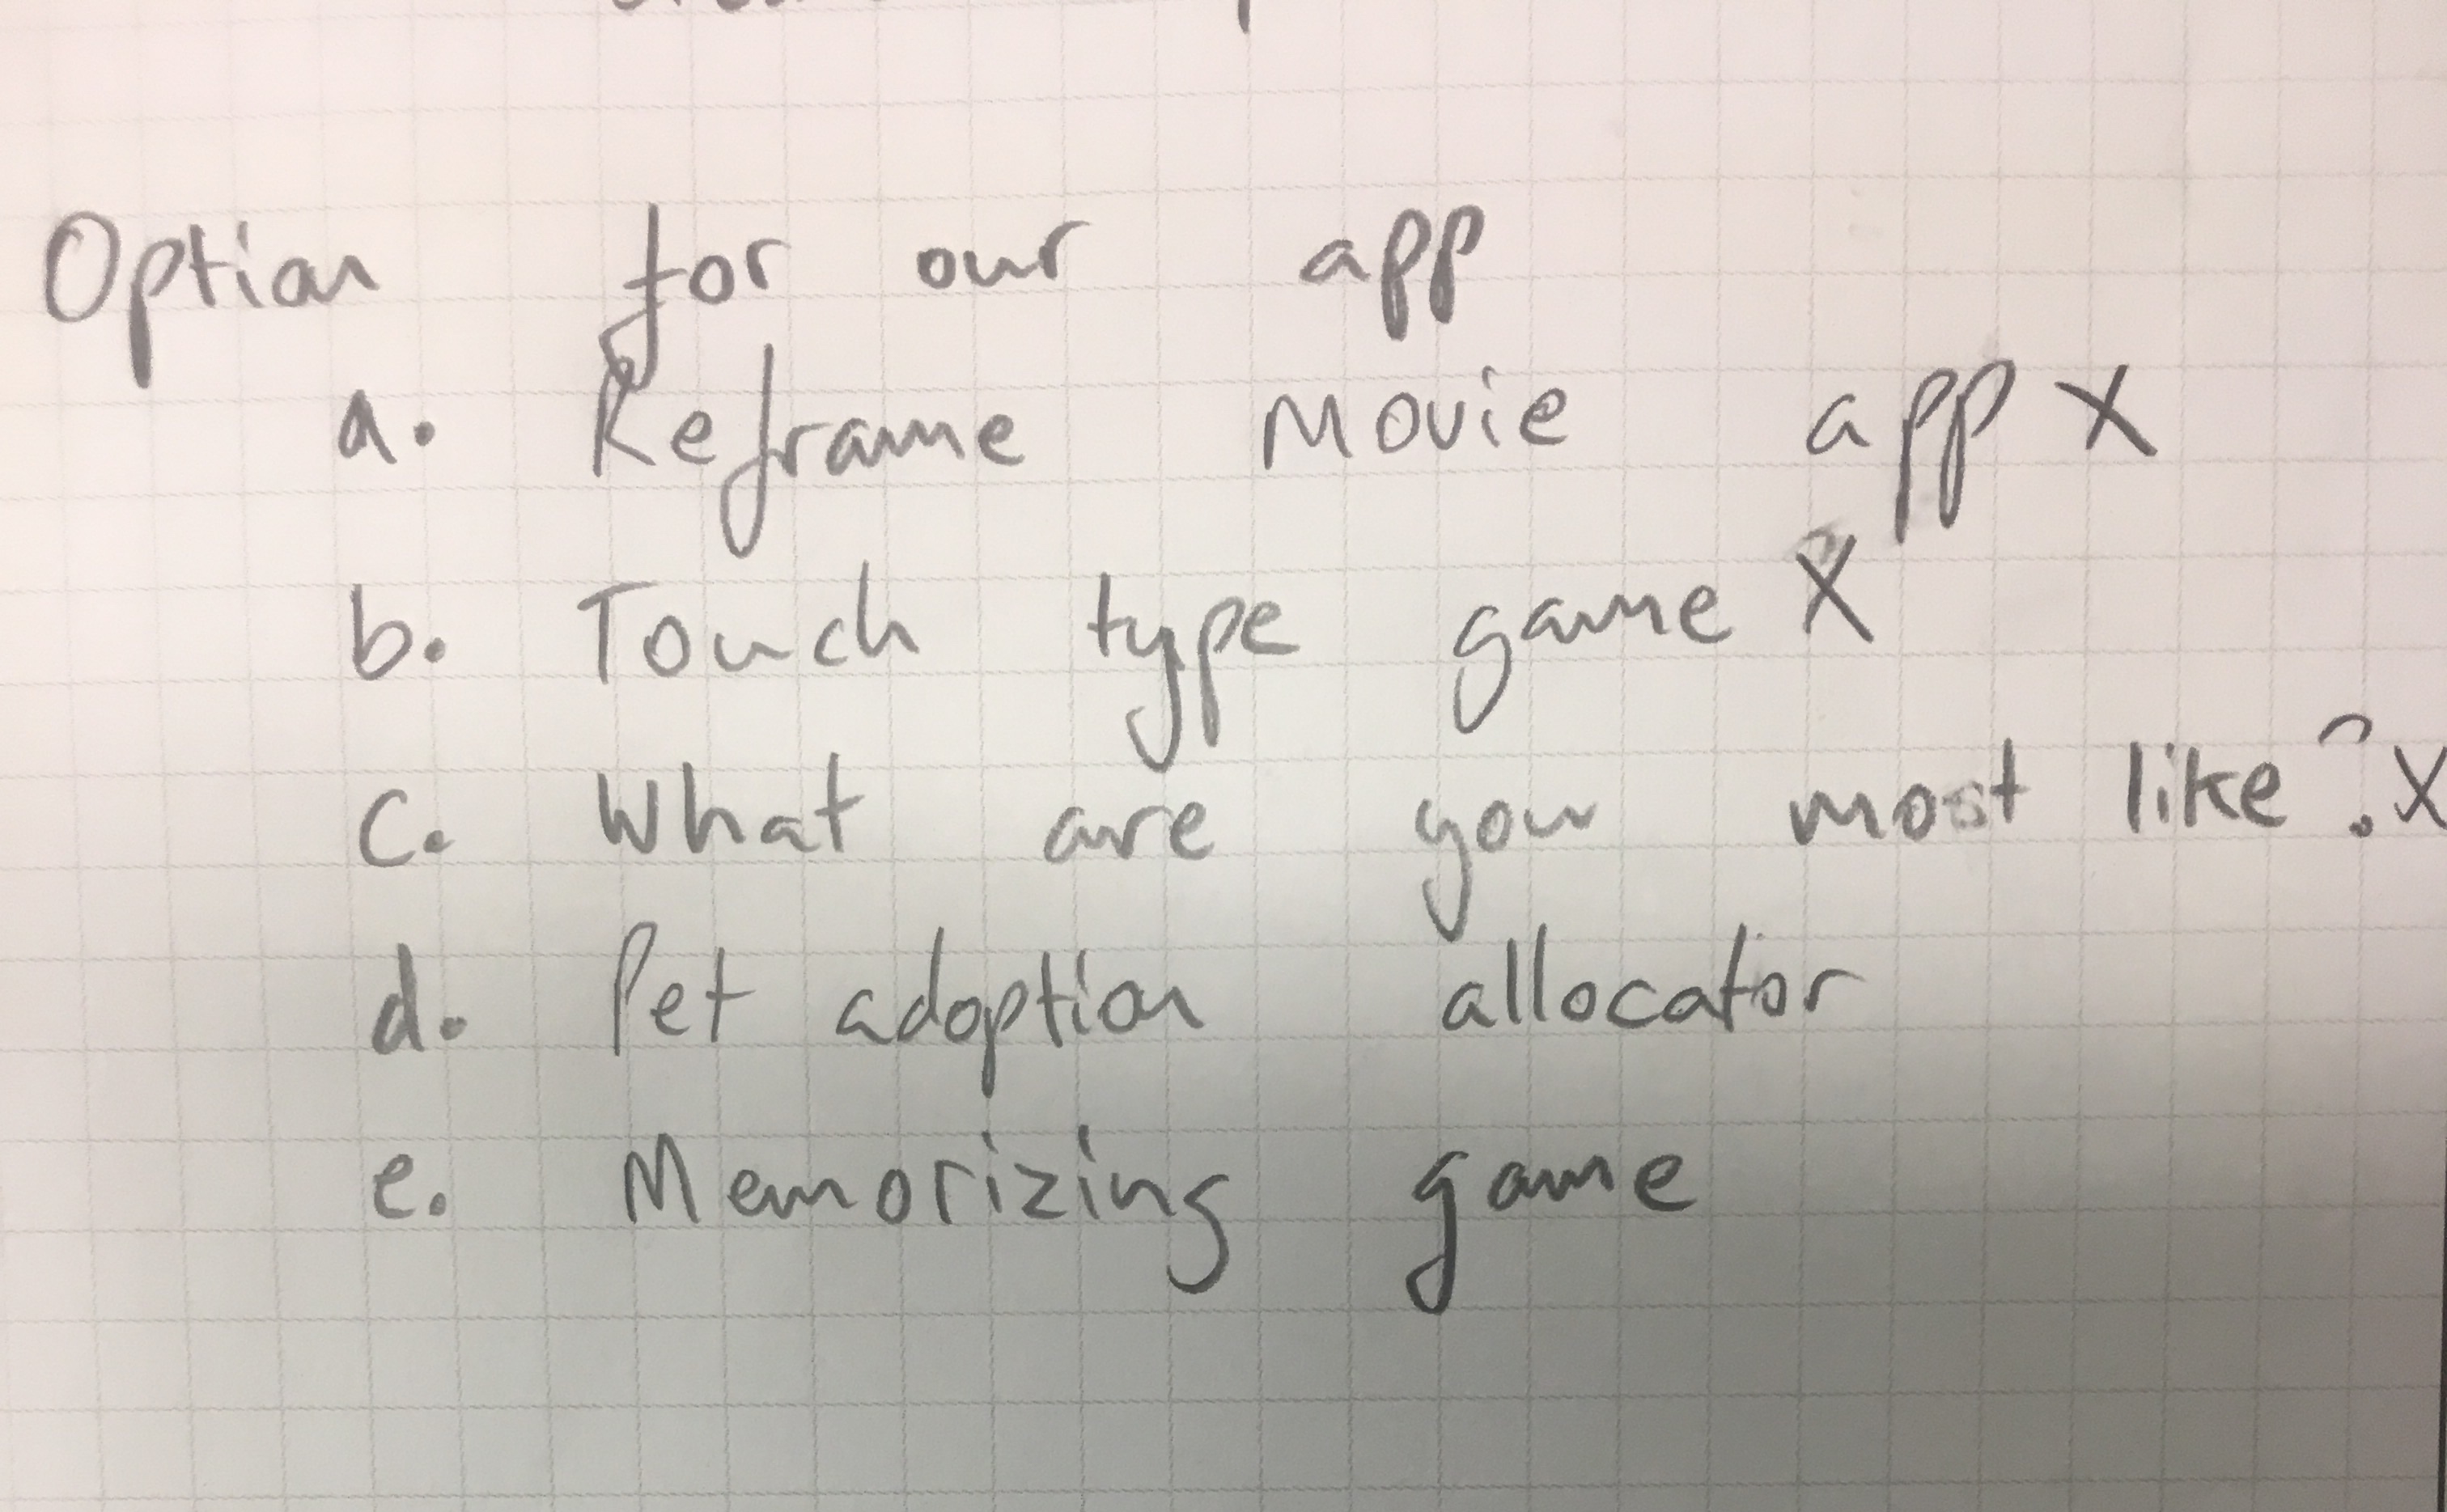 Option for our app
a. Reframe Movie app X
b. Touch type game X
c. What are you most like? X
d. Pet adoption allocator
e. Memorizing game